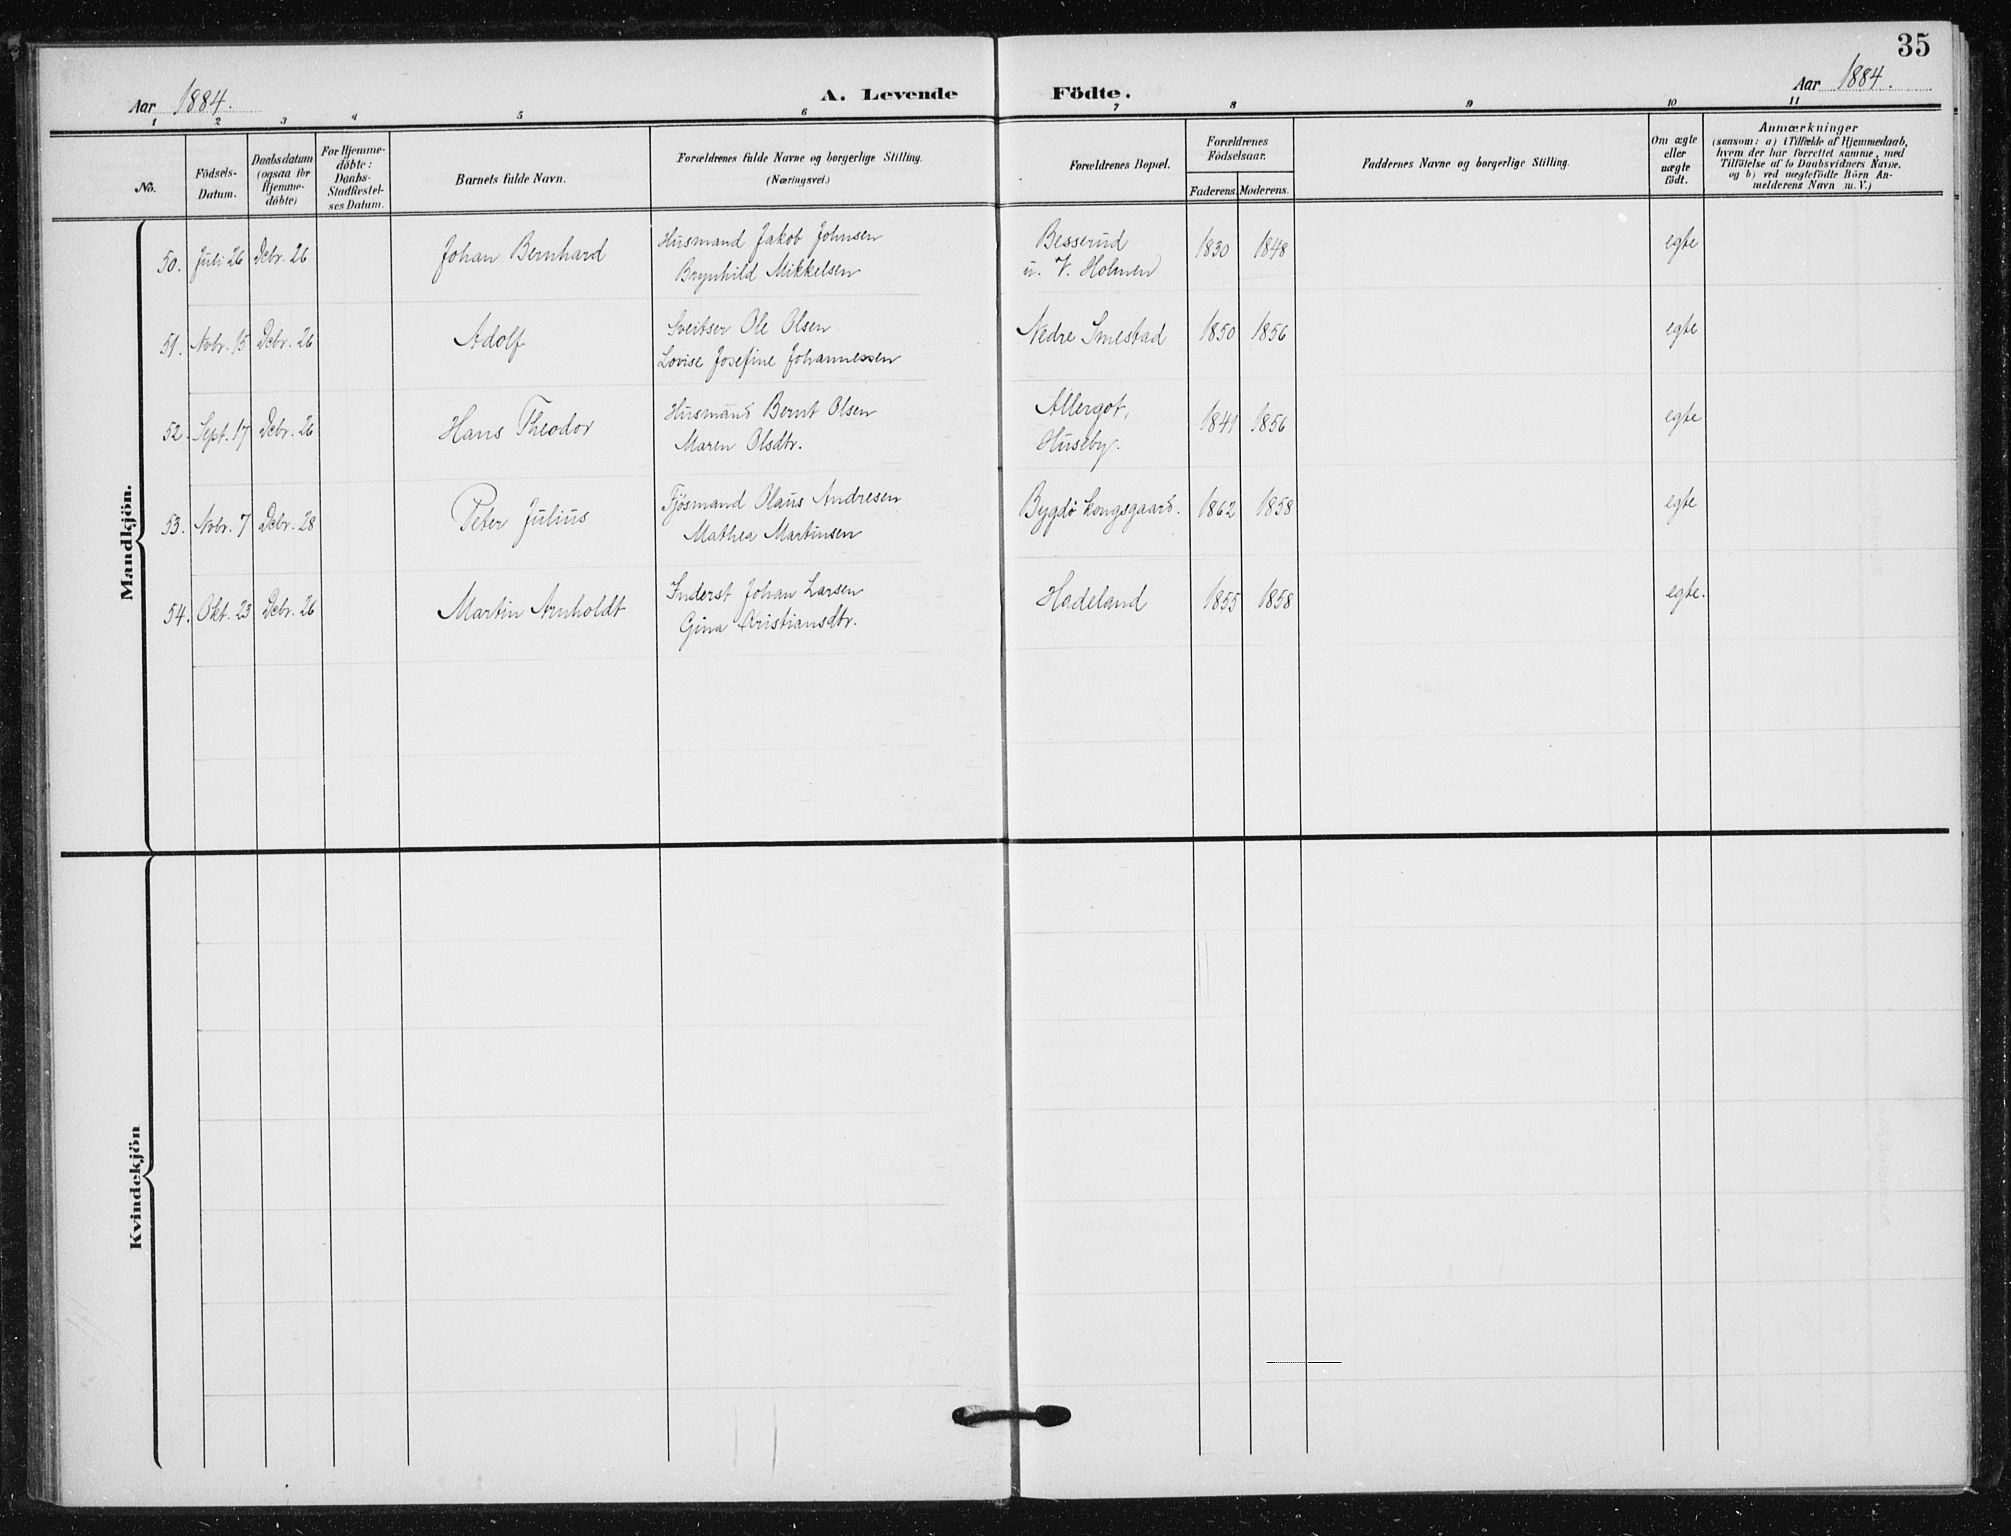 35
Aar 1884.
A. Levende Födte.
Aar 1884.
1 2 3 4 5 6 7 8 9 10 11
No.
Födsels-
Datum.
Daabsdatum
(ogsaa for
Hjemme-
döbte)
For Hjemme-
döbte:
Daabs-
Stadfæstel-
ses Datum.
Barnets fulde Navn.
Forældrenes fulde Navne og borgerlige Stilling.
(Næringsvei.)
Forældrenes Bopæl.
Forældrenes
Födselsaar.
Faderens. Moderens.
Faddernes Navne og borgerlige Stilling.
Om ægte
eller
uægte
födt.
Anmærkninger
(saasom: a) i Tilfælde af Hjemmedaab,
hvem der har forrettet samme, med
Tilföielse af to Daabsvidners Navne.
og b) ved uægtefödte Börn An-
melderens Navn m. V.)
Mandkjön.
50. Juli 26 Dcbr. 26 Johan Bernhard Husmand Jakob Johnsen Besserud 1830 1848 egte
Brynhild Mikkelsen u. V. Holmen
51. Nvbr. 15 Dcbr. 26 Adolf Sveitser Ole Olsen Nedre Smestad 1850 1856 egte
Lovise Josefine Johannessen
52. Sept. 17 Dcbr. 26 Hans Theodor Husmand Bernt Olsen Allergot, 1841 1856 egte
Maren Olsdtr. Huseby.
53. Nvbr. 7 Dcbr. 28 Peter Julius Fjösmand Olaus Andresen Bygdö Kongsgaard. 1862 1858 egte
Mathea Martinsen
54. Okt. 23 Dcbr. 26 Martin Arnholdt Inderst Johan Larsen Hadeland 1855 1858 egte.
Gina Kristiansdtr.
Kvindekjön